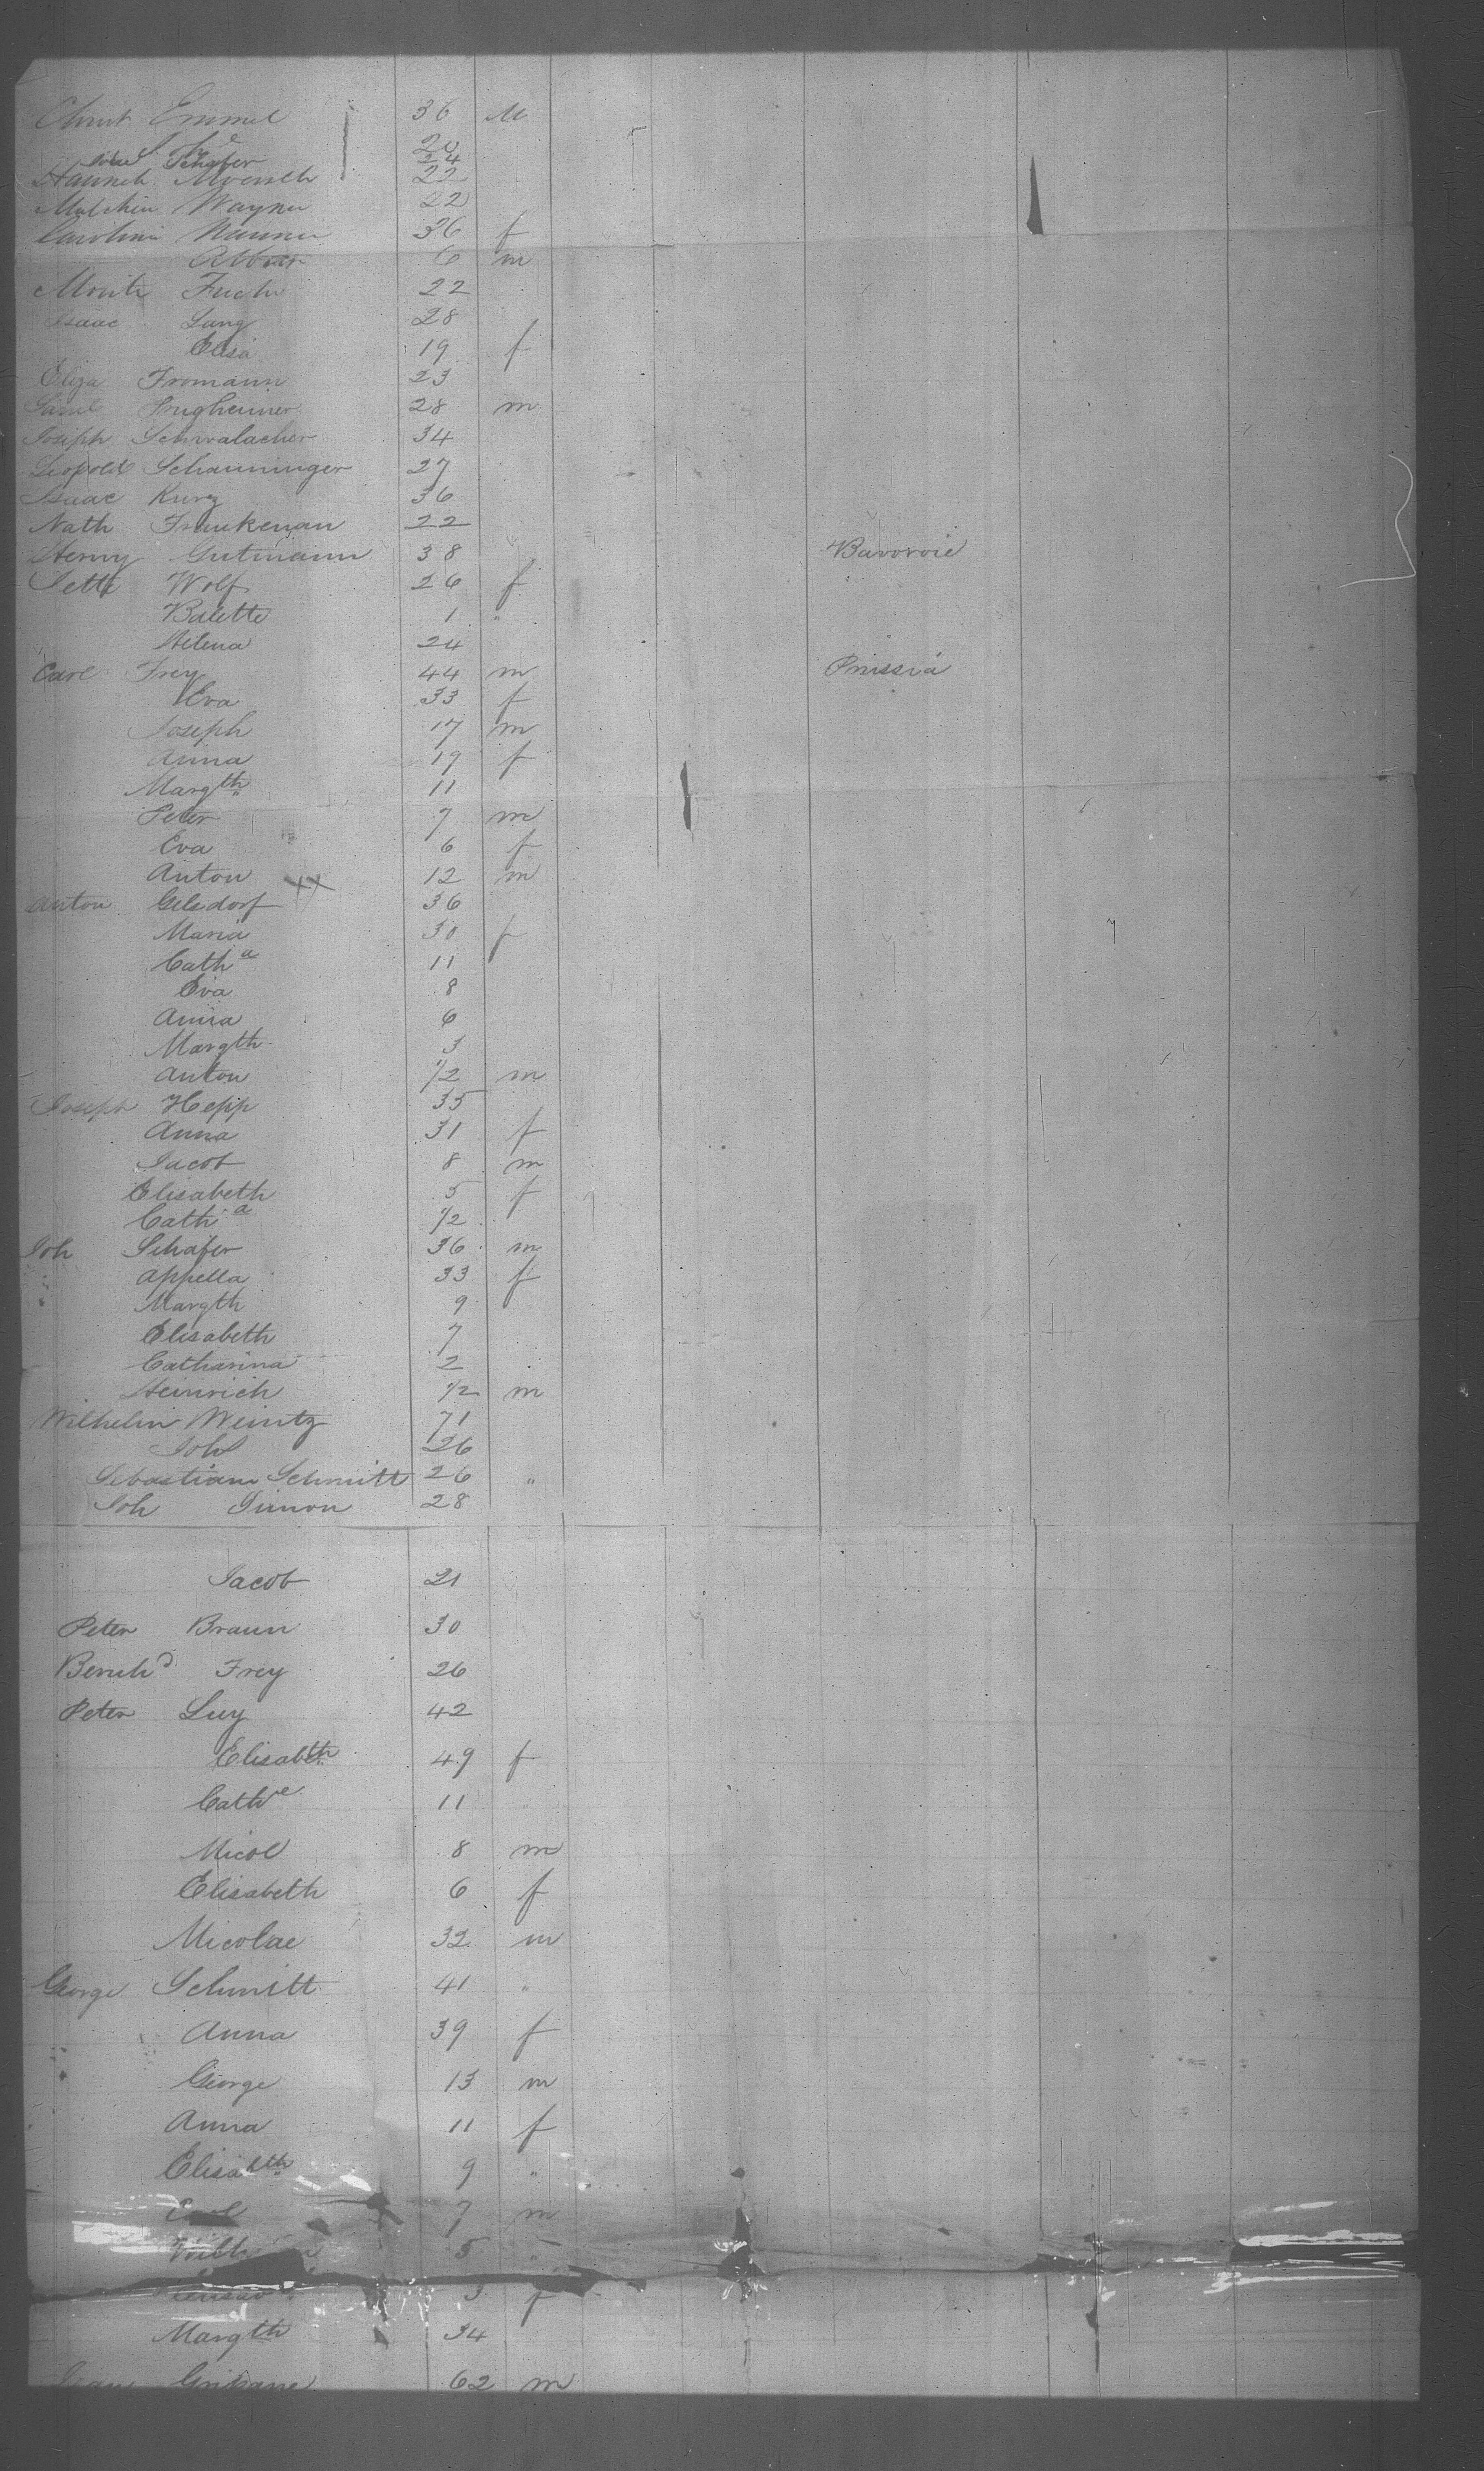 Christ Emmel 36 M
20
Schafer 24
22
Wayner 22
Carolini 36 f
6 m
Moritz Fuchs 22
Isaac Lang 28
Elisa 19 f
Eliza Fromann 23
28 m
Joseph Schwalacher 34
Leopold Schauninger 27
Isaac Kurz 36
Nath Frankenau 22
Henry Gutmann 38 Bavoroie
Jette Wolf 26 f
Balette 1 "
Helena 24
Carl Frey 44 m Prussia
Eva 33 f
Joseph 17 m
Anna 19 f
Margth 11
Peter 7 m
Eva 6 f
Anton 12 m
Anton Gelsdorf 36
Maria 30 f
Catha 11
Eva 8
Anna 6
Margth 3
Anton 1/2 m
Joseph Hepp 35
Anna 31 f
Jacob 8 m
Elisabeth 5 f
Catha 1/2
Joh Schafer 36 m
Appella 33 f
Margth 9
Elisabeth 7
Catharina 2
Heinrich 1/2 m
Wilhelm Weintz 71
Joh 26
Sebastian Schmitt 26 "
Joh Simon 28
Jacob 21
Peter Braun 30
Bernhd Frey 26
Peter Luy 42
Elisabth 49 f
Cathe 11
Nicol 8 m
Elisabeth 6 f
Nicolae 32 m
George Schmitt 41 "
Anna 39 f
George 13 m
Anna 11 f
Elisabth 9 "
7 m
5 "
3 f
Margth 34
62 m